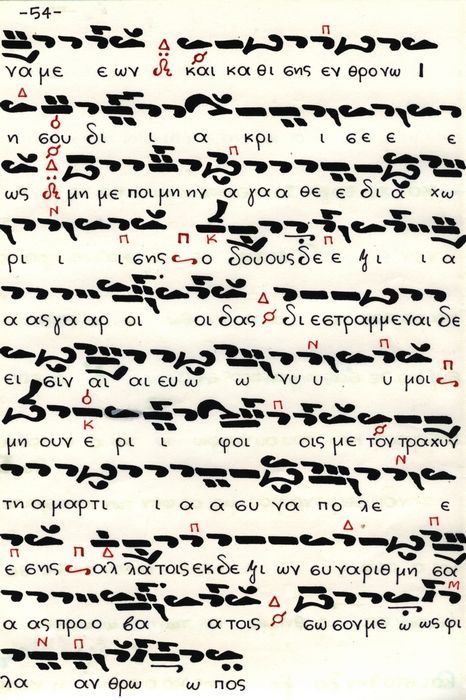 -54-
να με ε ων και κα θι σης εν θρο νω Ι
η σου δι ι α κρι ι σε ε ε
ως μη με ποι μη ην α γα α θε ε δι ά χω
ρι ι ι σης ο δους ους δε ε ξι ι α
α ας γα αρ οι οι δας δι ε στραμ μεν αι δε
ει σιν αι αι ευ ω ω νυ υ υ μοι
μη ουν ε ρι ι φοι οις με τον τρα χυν
τη α μαρ τι ι α α συ να πο λε ε
ε σης αλ λα τοις εκ δε ξι ων συ να ριθ μη σα
α ας προ ο βα α τοις σω σον με ω ως φι
λα αν θρω ω πος